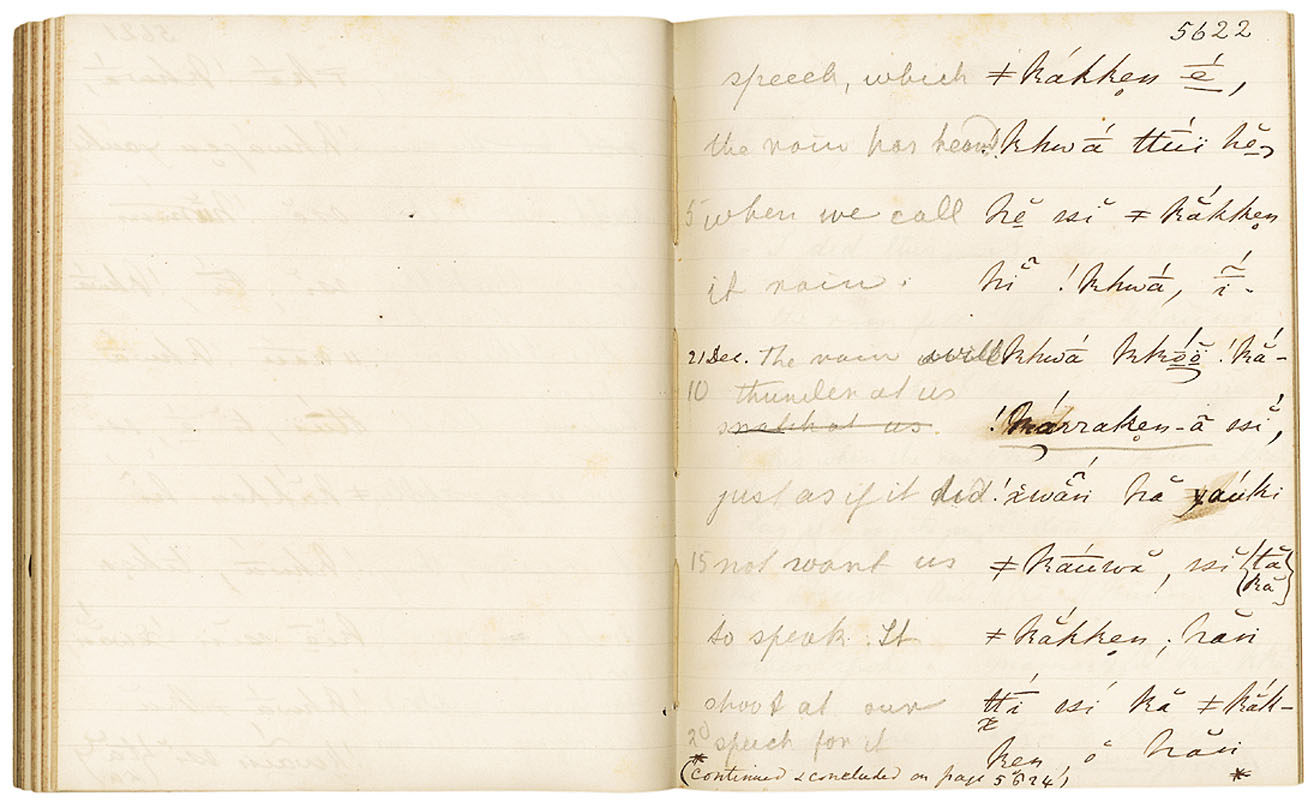 5622
speech, which ǂkákkẹn é̱,
the rain has heard !khwā́ ttū́ï hĕ̱,
5 when we call hĕ̱ ssĭ ǂkắkkẹn
it rain. hĭ̃ !khwā́, ī̃́.
21 Dec. The rain will !khwā́ kkṓŏ !kắ-
10 thunder at us
snatch at us. !kárrakẹn-ā ssĭ́,
just as if it did !χwā̃́ń hă yaúki
15 not want us ǂkaū́wă, ssĭ {tă
kă}
to speak. It ǂkắkkẹn; hăń
shoot at our ttī́ ssĭ kă ǂkắk-
20 speech for it kẹn, ŏ hăń
*(continued & concluded on page 5624) *